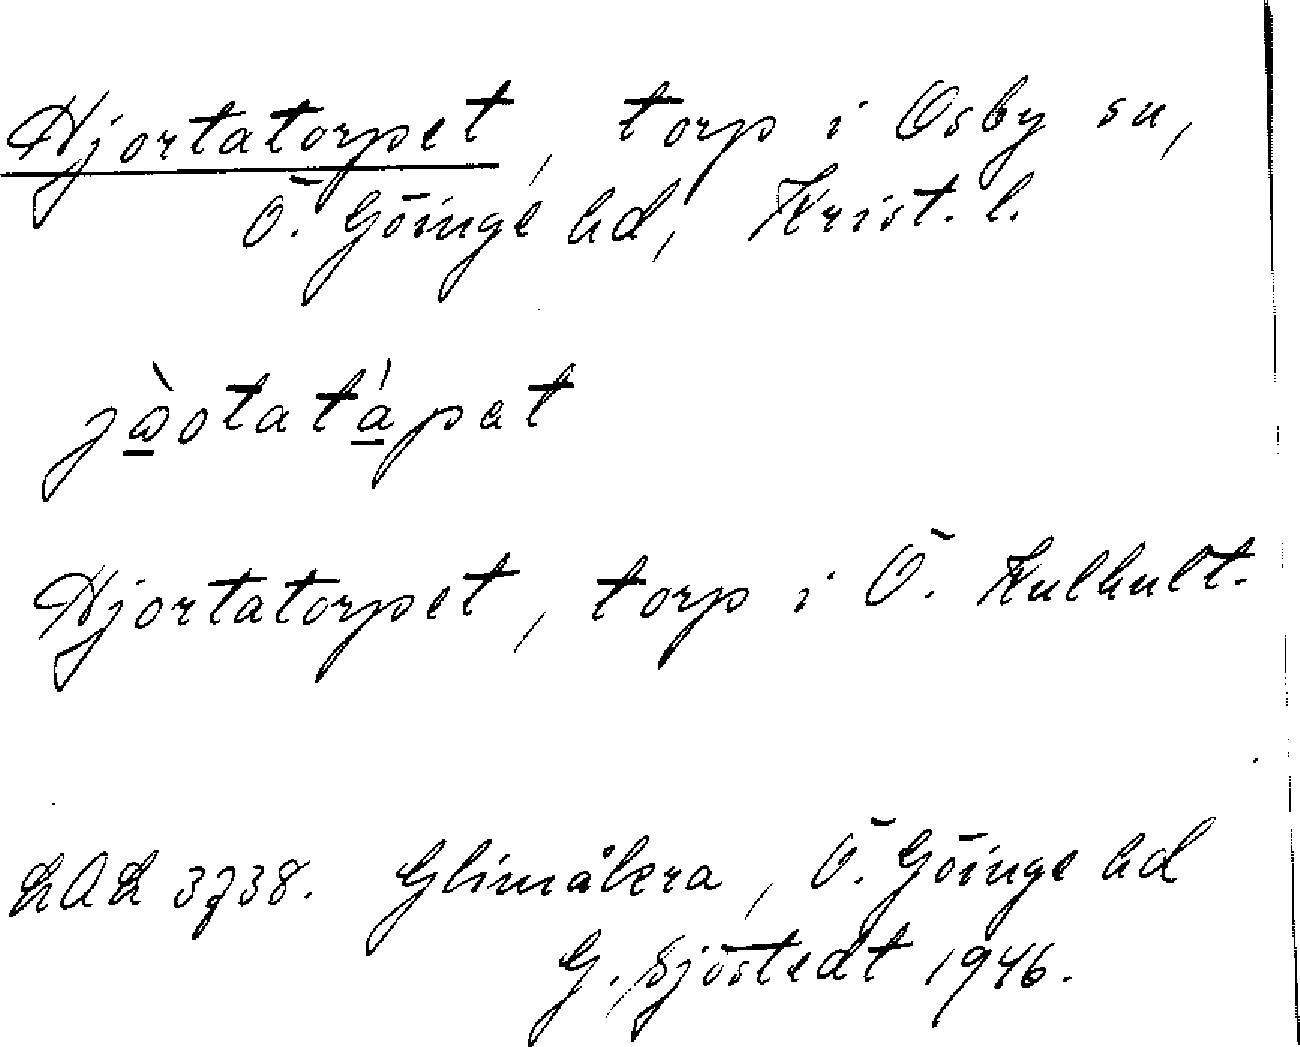 Hjortatorpet, torp i Osby sn,
Ö. Göinge hd, Krist. l.
Hjortatorpet, torp i Ö. Kulhult.
LAL 3738. Glimåkra, Ö. Göinge hd
G. Sjöstedt 1946.